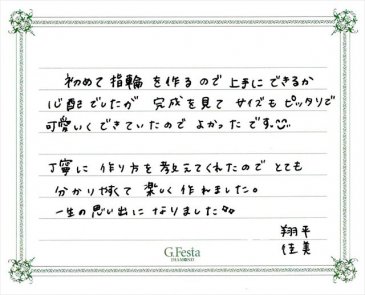 初めて指輪を作るので上手にできるか
心配でしたが 完成を見て サイズも ピッタリで
可愛いくできていたので よかったです。
丁寧に 作り方を教えてくれたので とても
分かりやすくて 楽しく作れました。
一生の思い出になりました
翔平
佳美
G.Festa
DIAMOND